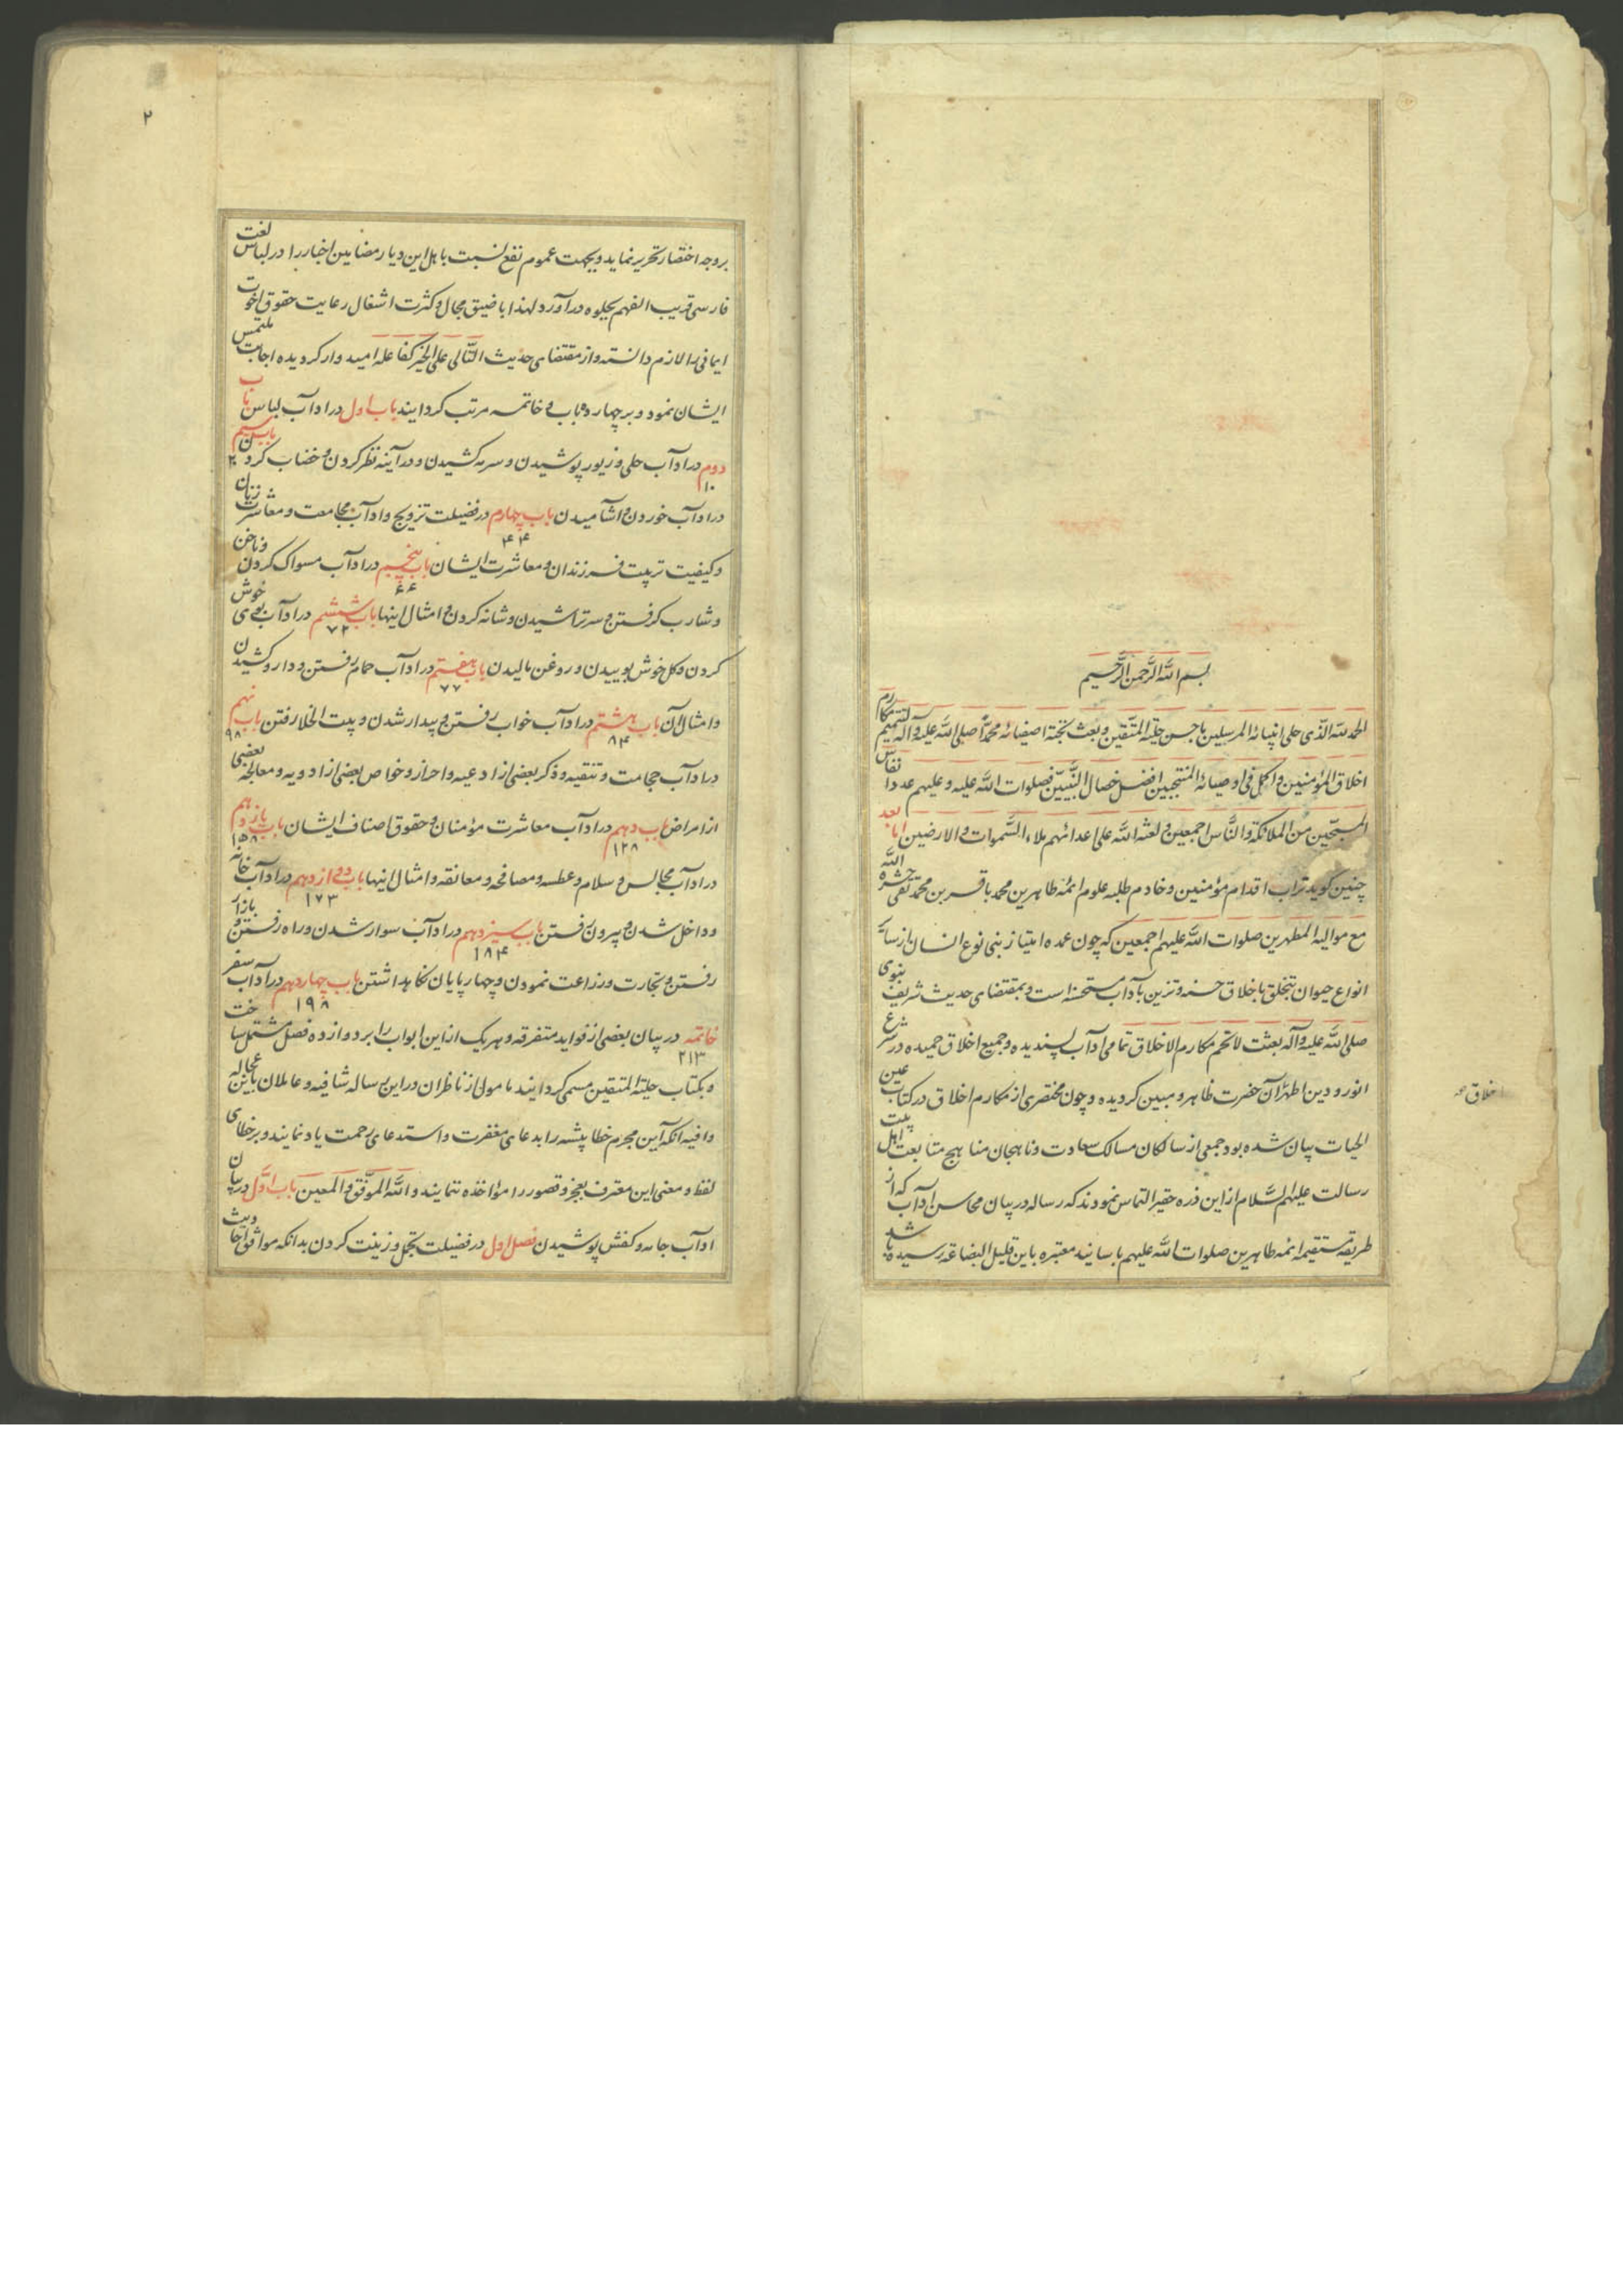 بسم الله الرَّحمن الرَّحیم
الحمد لله الذی حلی انبیائه المرسلین باحسن حلیة المتّقین و بعث نخبة اصفیائه محمّداً صلی الله علیه و آله لتتمیم مکارم
اخلاق المؤمنین و اکمل فی اوصیائه المنتجبین افضل خصال النّبیّین فصلوات الله علیه و علیهم عدد انفاس
المسبّحین من الملائکة و النّاس اجمعین و لعنة الله علی اعدائهم ملاء السّموات و الارضین اما بعد
چنین کوید تراب اقدام مؤمنین و خادم طلبه علوم ائمّه طاهرین محمد باقر بن محمد تقی حشره الله
مع موالیه المطهرین صلوات الله علیهم اجمعین که چون عمده امتیاز بنی نوع انسان از سایر
انواع حیوان بتخلق باخلاق حسنه و تزین بآداب مستحسنه است و بمقتضای حدیث شریف نبوی
صلی الله علیه و آله بعثت لاتمم مکارم الاخلاق تمامی آداب پسندیده و جمیع اخلاق حمیده در شرع
انور و دین اطهر آن حضرت ظاهر و مبین کردیده و چون مختصری از مکارم اخلاق در کتاب عین
اخلاق
الحیات بیان شده بود جمعی از سالکان مسالک سعادت و ناهجان مناهج متابعت اهل بیت
رسالت علیهم السّلام از این ذره حقیر التماس نمودند که رساله در بیان محاسن آداب که از
طریقه مستقیمه ائمه طاهرین صلوات الله علیهم باسانید معتبره باین قلیل البضاعة رسیده باشد
۲
بر وجه اختصار تحریر نماید و بجهت عموم نفع نسبت باهل این دیار مضامین اخبار را در لباس لغت
فارسی قریب الفهم بجلوه درآورد لهذا با ضیق مجال و کثرت اشغال رعایت حقوق اخوت
ایمانی را لازم دانسته و از مقتضای حدیث الدّالّ علی الخیر کفاعله امیدوار کردیده اجابت ملتمس
ایشان نمود و بر چهارده باب و خاتمه مرتب کردانید باب اول در اداب لباس باب
دوم در اداب حلی و زیور پوشیدن و سرمه کشیدن و در آینه نظر کردن و خضاب کردن باب سیم
۱۰ ۲۰
در اداب خوردن و اشامیدن باب چهارم در فضیلت تزویج و اداب مجامعت و معاشرت زنان
۴۴
و کیفیت تربیت فرزندان و معاشرت ایشان باب پنجم در اداب مسواک کردن و ناخن
۶۶
و شارب کرفتن و سر تراشیدن و شانه کردن و امثال اینها باب ششم در اداب بوی خوش
۷۲
کردن و کل خوش بوییدن و روغن مالیدن باب هفتم در اداب حمام رفتن و دارو کشیدن
۷۷
و امثال آن باب هشتم در اداب خواب رفتن و بیدار شدن و بیت الخلا رفتن باب نهم
۸۴ ۹۸
در اداب حجامت و تنقیه و ذکر بعضی از ادعیه و احراز و خواص بعضی از ادویه و معالجه بعضی
از امراض باب دهم در اداب معاشرت مؤمنان و حقوق اصناف ایشان باب یازدهم
۱۲۸ ۱۵۸
در اداب مجالس و سلام و عطسه و مصافحه و معانقه و امثال اینها باب دوازدهم در اداب خانه
۱۷۳
و داخل شدن و بیرون رفتن باب سیزدهم در اداب سوار شدن و راه رفتن و بازار
۱۸۴
رفتن و تجارت و زراعت نمودن و چهارپایان نکاه داشتن باب چهاردهم در آداب سفر
۱۹۸
خاتمه در بیان بعضی از فواید متفرقه و هر یک از این ابواب را بر دوازده فصل مشتمل ساخت
۲۱۳
و بکتاب حلیة المتقین مسمی کردانید مامول از ناظران در این رساله شافیه و عاملان باین عجاله
وافیه انکه این مجرم خطا پیشه را بدعای مغفرت و استدعای رحمت یاد نمایند و بر خطای
لفظ و معنی این معترف بعجز و قصور را مؤاخذه ننمایند و الله الموفّق و المعین باب اوّل در بیان
اداب جامه و کفش پوشیدن فصل اول در فضیلت تجمل و زینت کردن بدانکه موافق احادیث